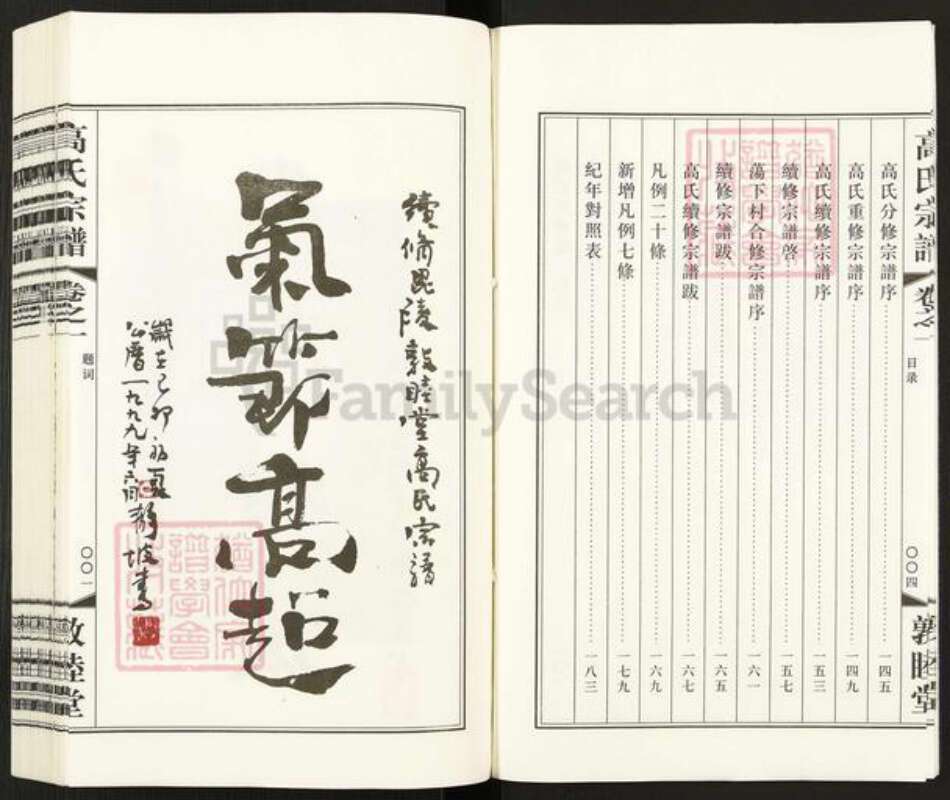 高氏宗譜
卷之一
目录
〇〇四
敦睦堂
高氏分修宗譜序 一四五
高氏重修宗譜序 一四九
高氏續修宗譜序 一五三
續修宗譜啓 一五七
蕩下村合修宗譜序 一六一
續修宗譜跋 一六五
高氏續修宗譜跋 一六七
凡例二十條 一六九
新增凡例七條 一七九
紀年對照表 一八三
續脩毘陵敦睦堂高氏宗譜
氣節高超
歲在己卯初夏
公曆一九九九年六月靜坡書
高氏宗譜
卷之一
题词
〇〇一
敦睦堂
FamilySearch